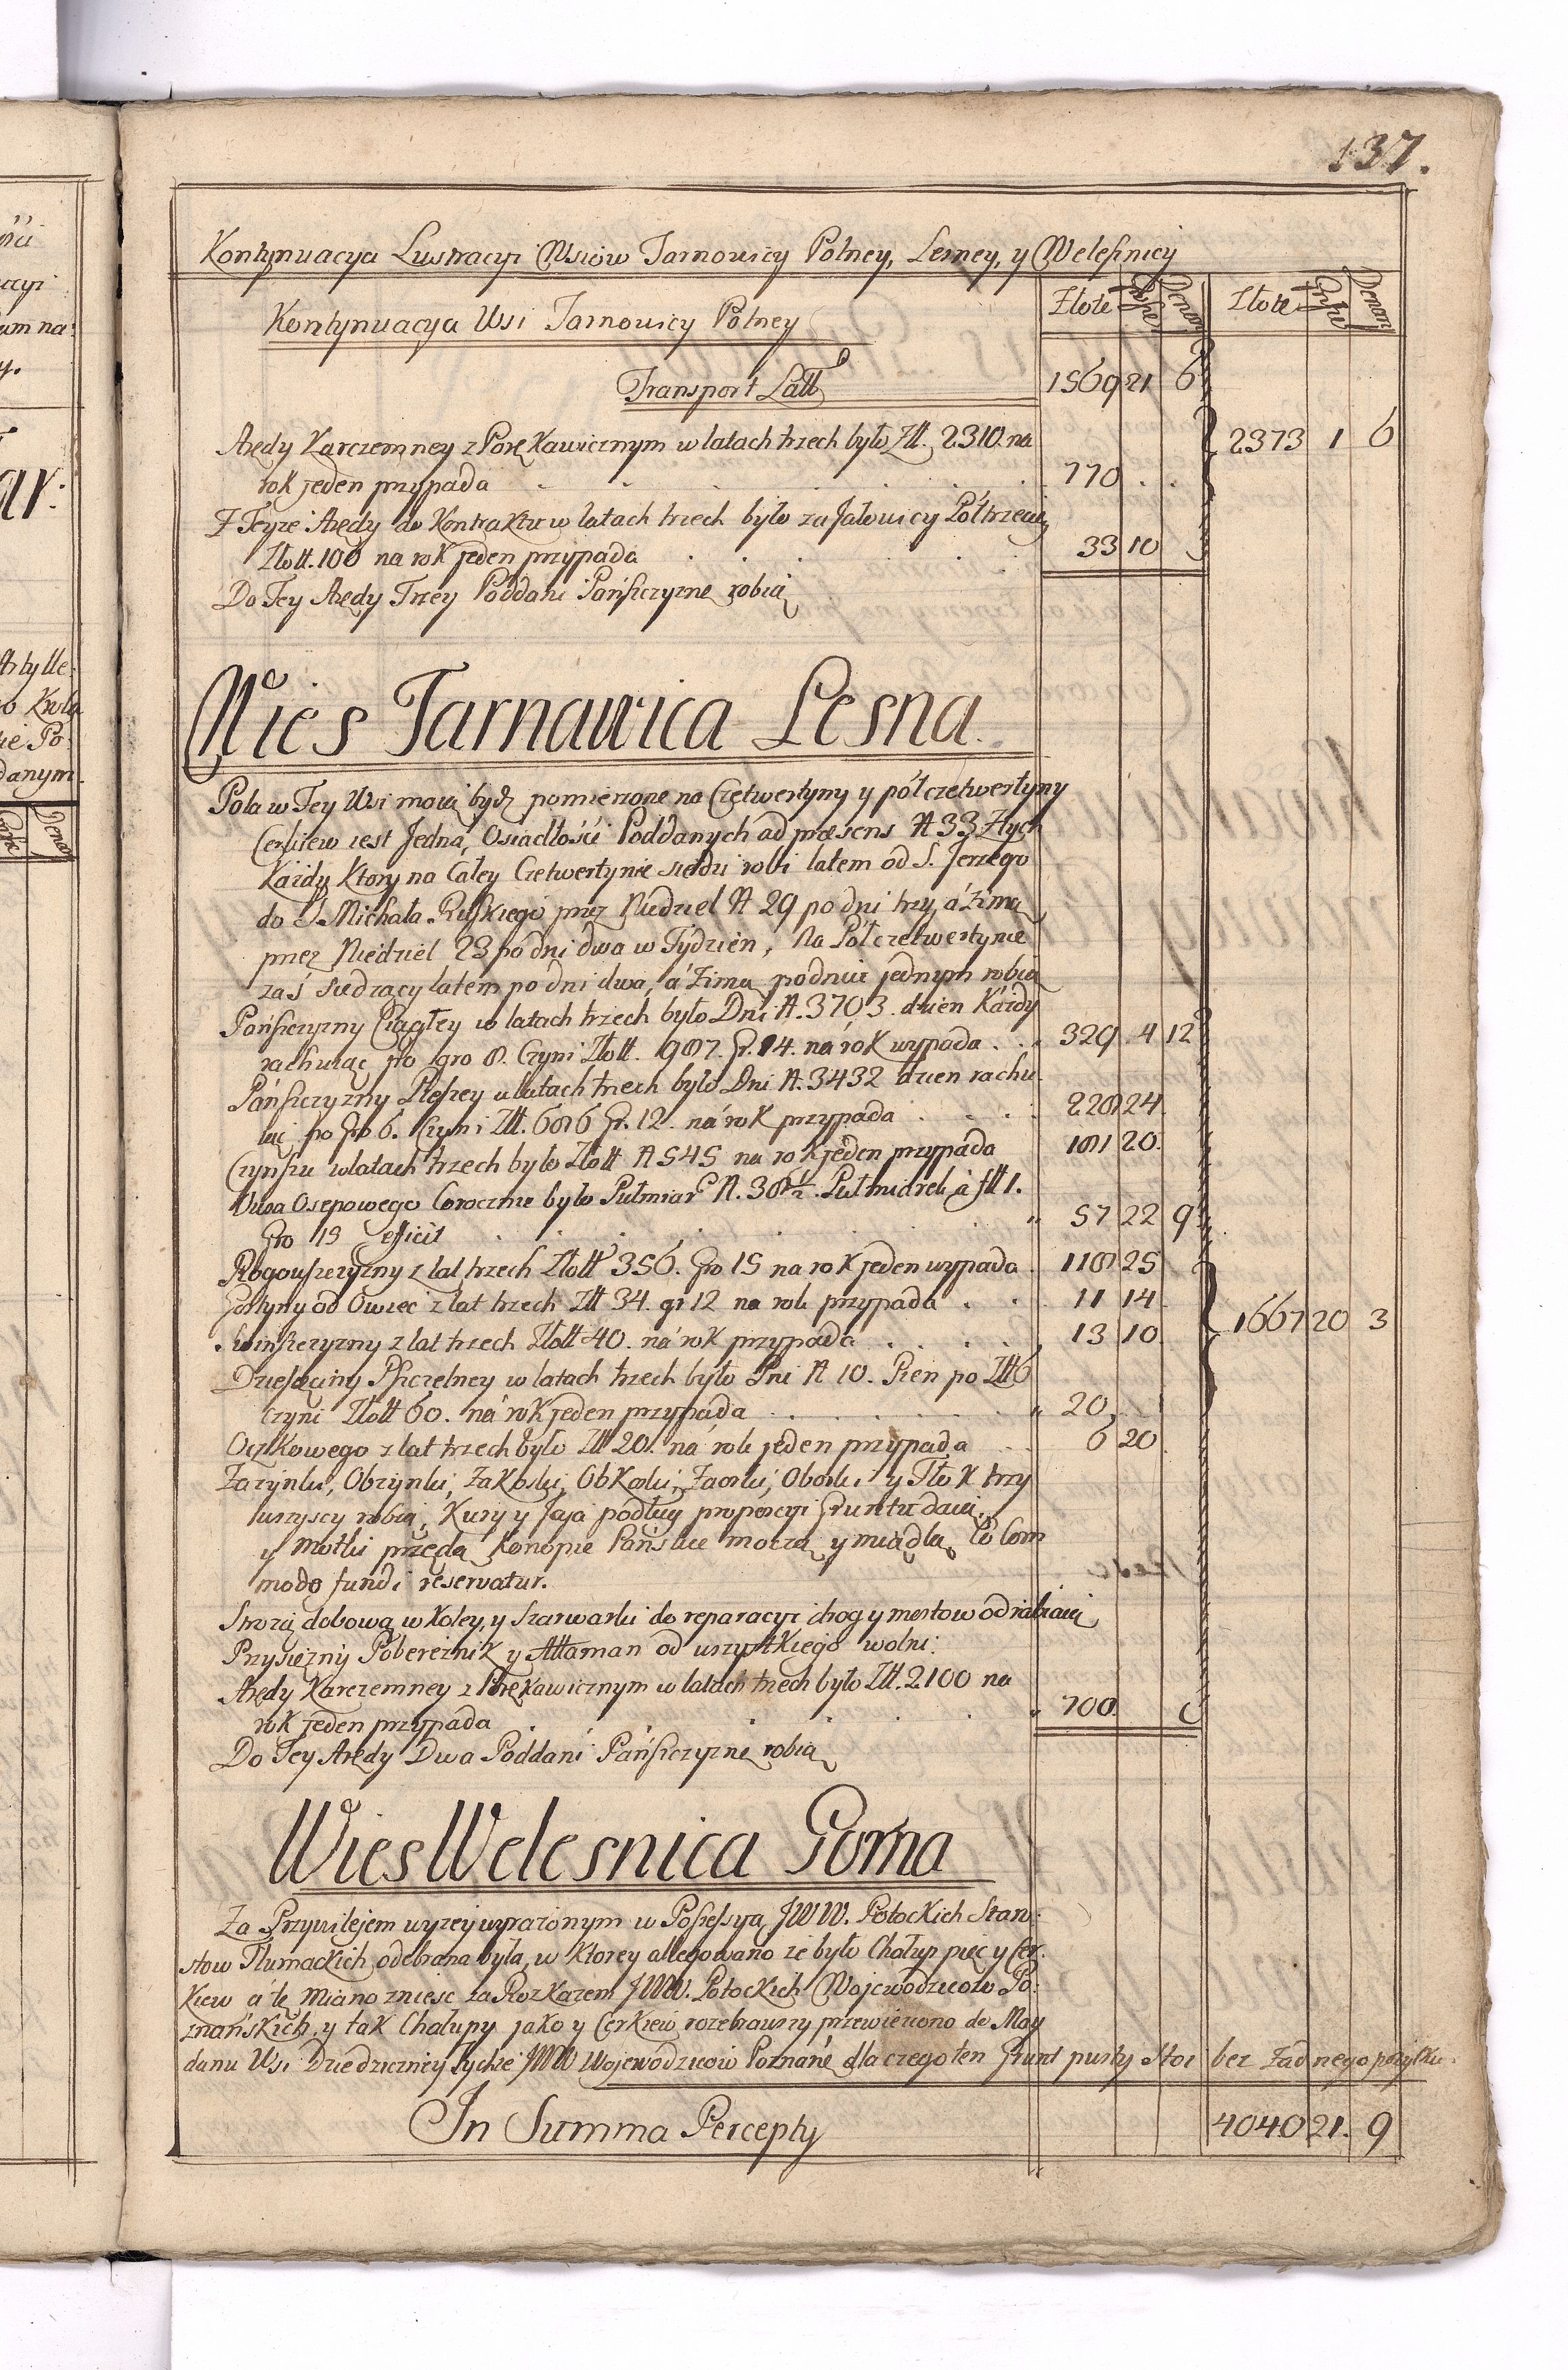 137.
Kontynuacya Lustracyi Wsiow Tarnowicy Polney, Lesney, y Welesnicy
Kontynuacya Wsi Tarnowicy Polney
Złote Grosze Denar Złote Grosze Denar
Transport Latt 1569 21 6
Arędy Karczemney z Porękawicznym w latach trzech było Złł. 2310. na 2373 1 6
rok jeden przypada 770 . .
Z Teyze Arędy do Kontraktu w latach trzech było za Jałowicy Półtrzeciey
Złott. 100 na rok jeden przypada 33 10
Do Tey Arędy Trzey Poddani Pańszczyznę robią
Wies Tarnawica Lesna.
Pola w Tey Wsi mową bydź pomierzone na Czetwertyny y półczetwertyny
Cerkiew iest Jedna, Osiadłości Poddanych ad præsens N 33 Z tych
Kazdy Ktory na Całey Czetwertynie siedzi robi latem od S. Jerzego
do S. Michała Ruskiego przez Niedziel N 29 po dni trzy, á zimą
przez Niedziel 23 po dni dwa w Tydzien, Na Pół czetwertynie
zas siedzący latem po dni dwa, á zimą podniu jednym robią
Pańszczyzny Ciągłey w latach trzech było Dni N. 3703. dzien Kázdy
rachuiąc po gro 8. Czyni Złott. 987. Gr. 14. ná rok wypada 329 . 4 12
Pańszczyzny Pieszey w latach trzech było Dni N. 3432 dzien rachu-
iąc po Gro 6. Czyni Złł. 686 Gr. 12. ná rok przypada 228 24
Czynszu w latach trzech było Złott N 545 na rok jeden przypada 181 20
Owsa Osepowego Corocznie było Pułmiar N. 38½. Pułmiarek á fll 1.
Gro 15 efficit 57 22 9
Rogowszczyzny z lat trzech Złott 356. Gro 15 na rok jeden wypada 118 25
Gostyny od Owiec z lat trzech Złł 34. gr 12 na rok przypada 11 14
Swinszczyzny z lat trzech Złott 40. ná rok przypada 13 10 1667 20 3
Dziesięciny Pszczelney w latach trzech było Pni N 10. Pien po Złł 6
czyni Złott 60. ná rok jeden przypada 20
Oczkowego z lat trzech było Złł 20. ná rok jeden przypada 6 20
Zazynki, Obzynki, Zakoski, Obkoski, Zaorki, Oborki y Tłok trzy
wszyscy robią, Kury y Jaja podług proporcyi Gruntu dają,
y Motki przędą Konopie Pańskie moczą y miądlą, Co Com
modo fundi reservatur.
Strozą dobową w Koley, y Szarwarki do reparacyi drog y mostow odrabiaią
Przysięzny Pobereznik y Attaman od wszystkiego wolni.
Arędy Karczemney z Porękawicznym w latach trzech było Złł. 2100 na
rok jeden przypada 700
Do Tey Arędy Dwa Poddani Pańszczyznę robią
Wies Welesnica Gorna
Za Przywilejem wyzey wyrazonym w Possessyą JWW. Potockich Staro-
stow Tłumackich odebrana była, w Ktorey allegowano ze było Chałup pięc y Cer-
kiew á tę miano zniesc za Rozkazem JWW. Potockich Wojewodzicow Po-
znańskich, y tak Chałupy jako y Cerkiew rozebrawszy przewieziono do May
danu Wsi Dziedziczney tychze JWW Wojewodzicow Poznáń dla czego ten Grunt pusty stoi bez zadnego pozytku.
In Summa Percepty 4040 21. 9